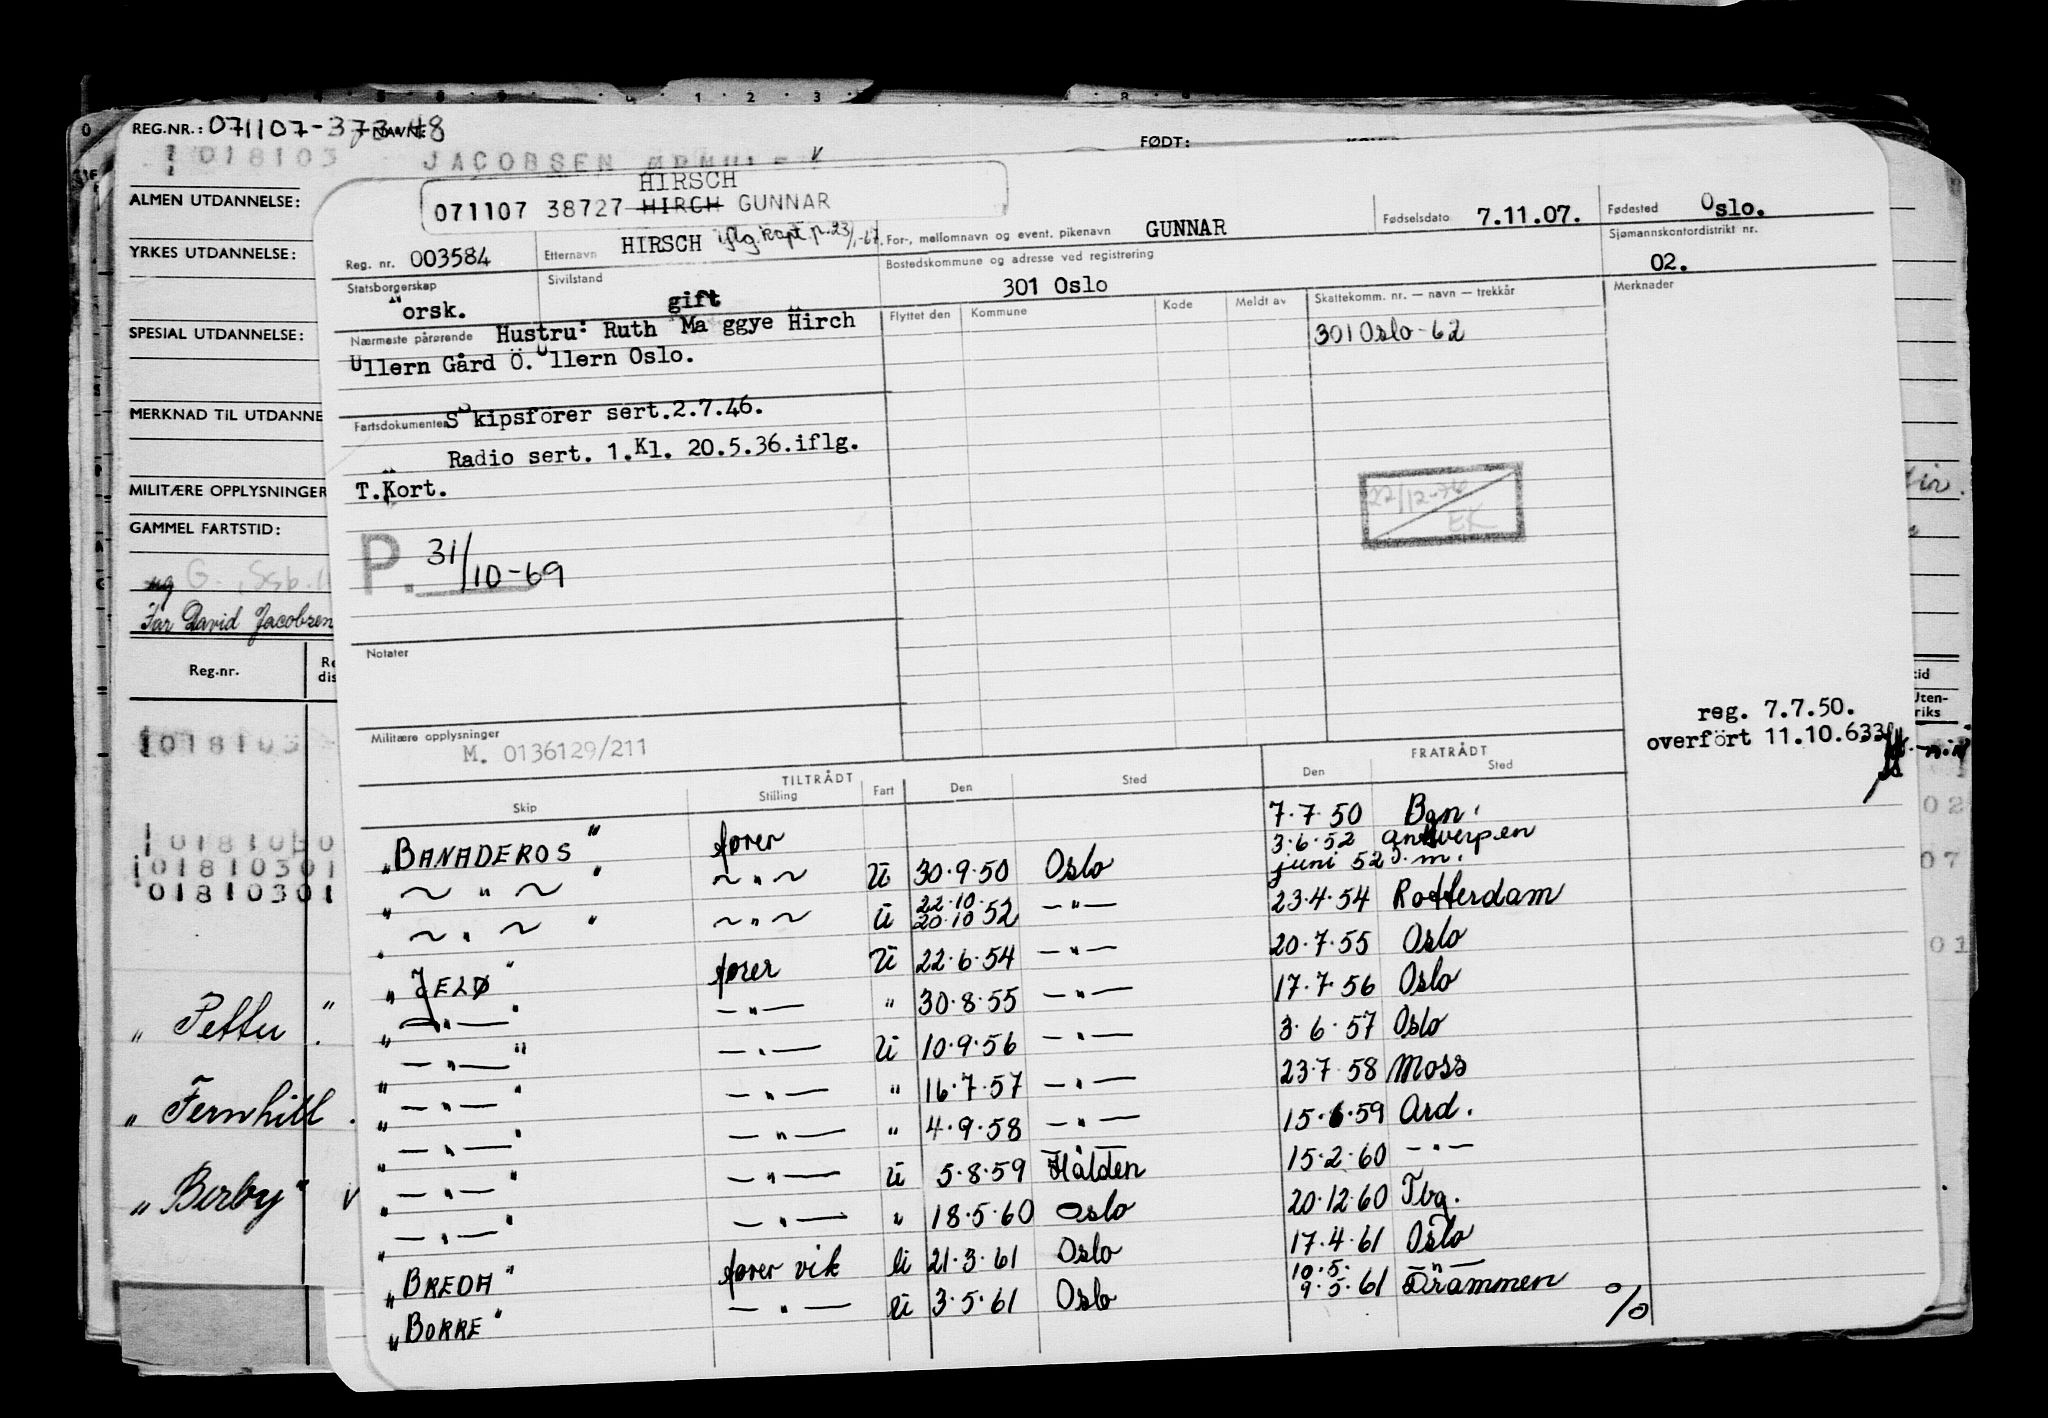 REG.NR.: 071107-373 48 FØDT:
1018103 JACOBSEN
ALMEN UTDANNELSE:
YRKES UTDANNELSE:
SPESIAL UTDANNELSE:
MERKNAD TIL UTDANNE
MILITÆRE OPPLYSNINGER
GAMMEL FARTSTID:
Far David Jacobsen
Reg.nr.
1018103
01810301
01810301
"Petter"
"Fernhill
"Birby" v
HIRSCH
071107 38727 HIRCH GUNNAR
Reg. nr. 003584 Etternavn HIRSCH iflg. Rapt. p. 23/1-67. For-, mellomnavn og event. pikenavn GUNNAR Fødselsdato 7.11.07. Fødested Oslo.
Statsborgerskap Norsk. Sivilstand gift Bostedskommune og adresse ved registrering 301 Oslo Sjømannskontordistrikt nr. 02.
Nærmeste pårørende Hustru: Ruth Maggye Hirch
Ullern Gård Ö. Ullern Oslo.
Flyttet den Kommune Kode Meldt av Skattekomm. nr. — navn — trekkår Merknader
301 Oslo-62
Fartsdokumenter Skipsförer sert.2.7.46.
Radio sert. 1.Kl. 20.5.36.iflg.
T.Kort.
22/12-76
EK
P. 31/10-69
Notater
Militære opplysninger
M. 0136129/211
reg. 7.7.50.
overført 11.10.63
TILTRÅDT FRATRÅDT
Skip Stilling Fart Den Sted Den Sted
"BANADEROS" fører 7.7.50 Bgn.
" ~ " ~ " ~ " ~ U 30.9.50 Oslo 3.6.52 Antwerpen
juni 52 d.m.
" ~ " ~ " ~ " ~ U 22.10. 20.10 52 — " — 23.4.54 Rotterdam
"JELØ" fører U 22.6.54 — " — 20.7.55 Oslo
" — " — " — " — " 30.8.55 — " — 17.7.56 Oslo
" — " — " — " — U 10.9.56 — " — 3.6.57 Oslo
" — " — " — " — " 16.7.57 — " — 23.7.58 Moss
" — " — " — " — " 4.9.58 — " — 15.6.59 Ard.
" — " — " — " — U 5.8.59 Halden 15.2.60 — " —
" — " — " — " — " 18.5.60 Oslo 20.12.60 Tbg.
"BREDA" fører vik U 21.3.61 Oslo 17.4.61 Oslo
"BORRE" — " — U 3.5.61 Oslo 10.5. — " —
9.5.61 Drammen
%